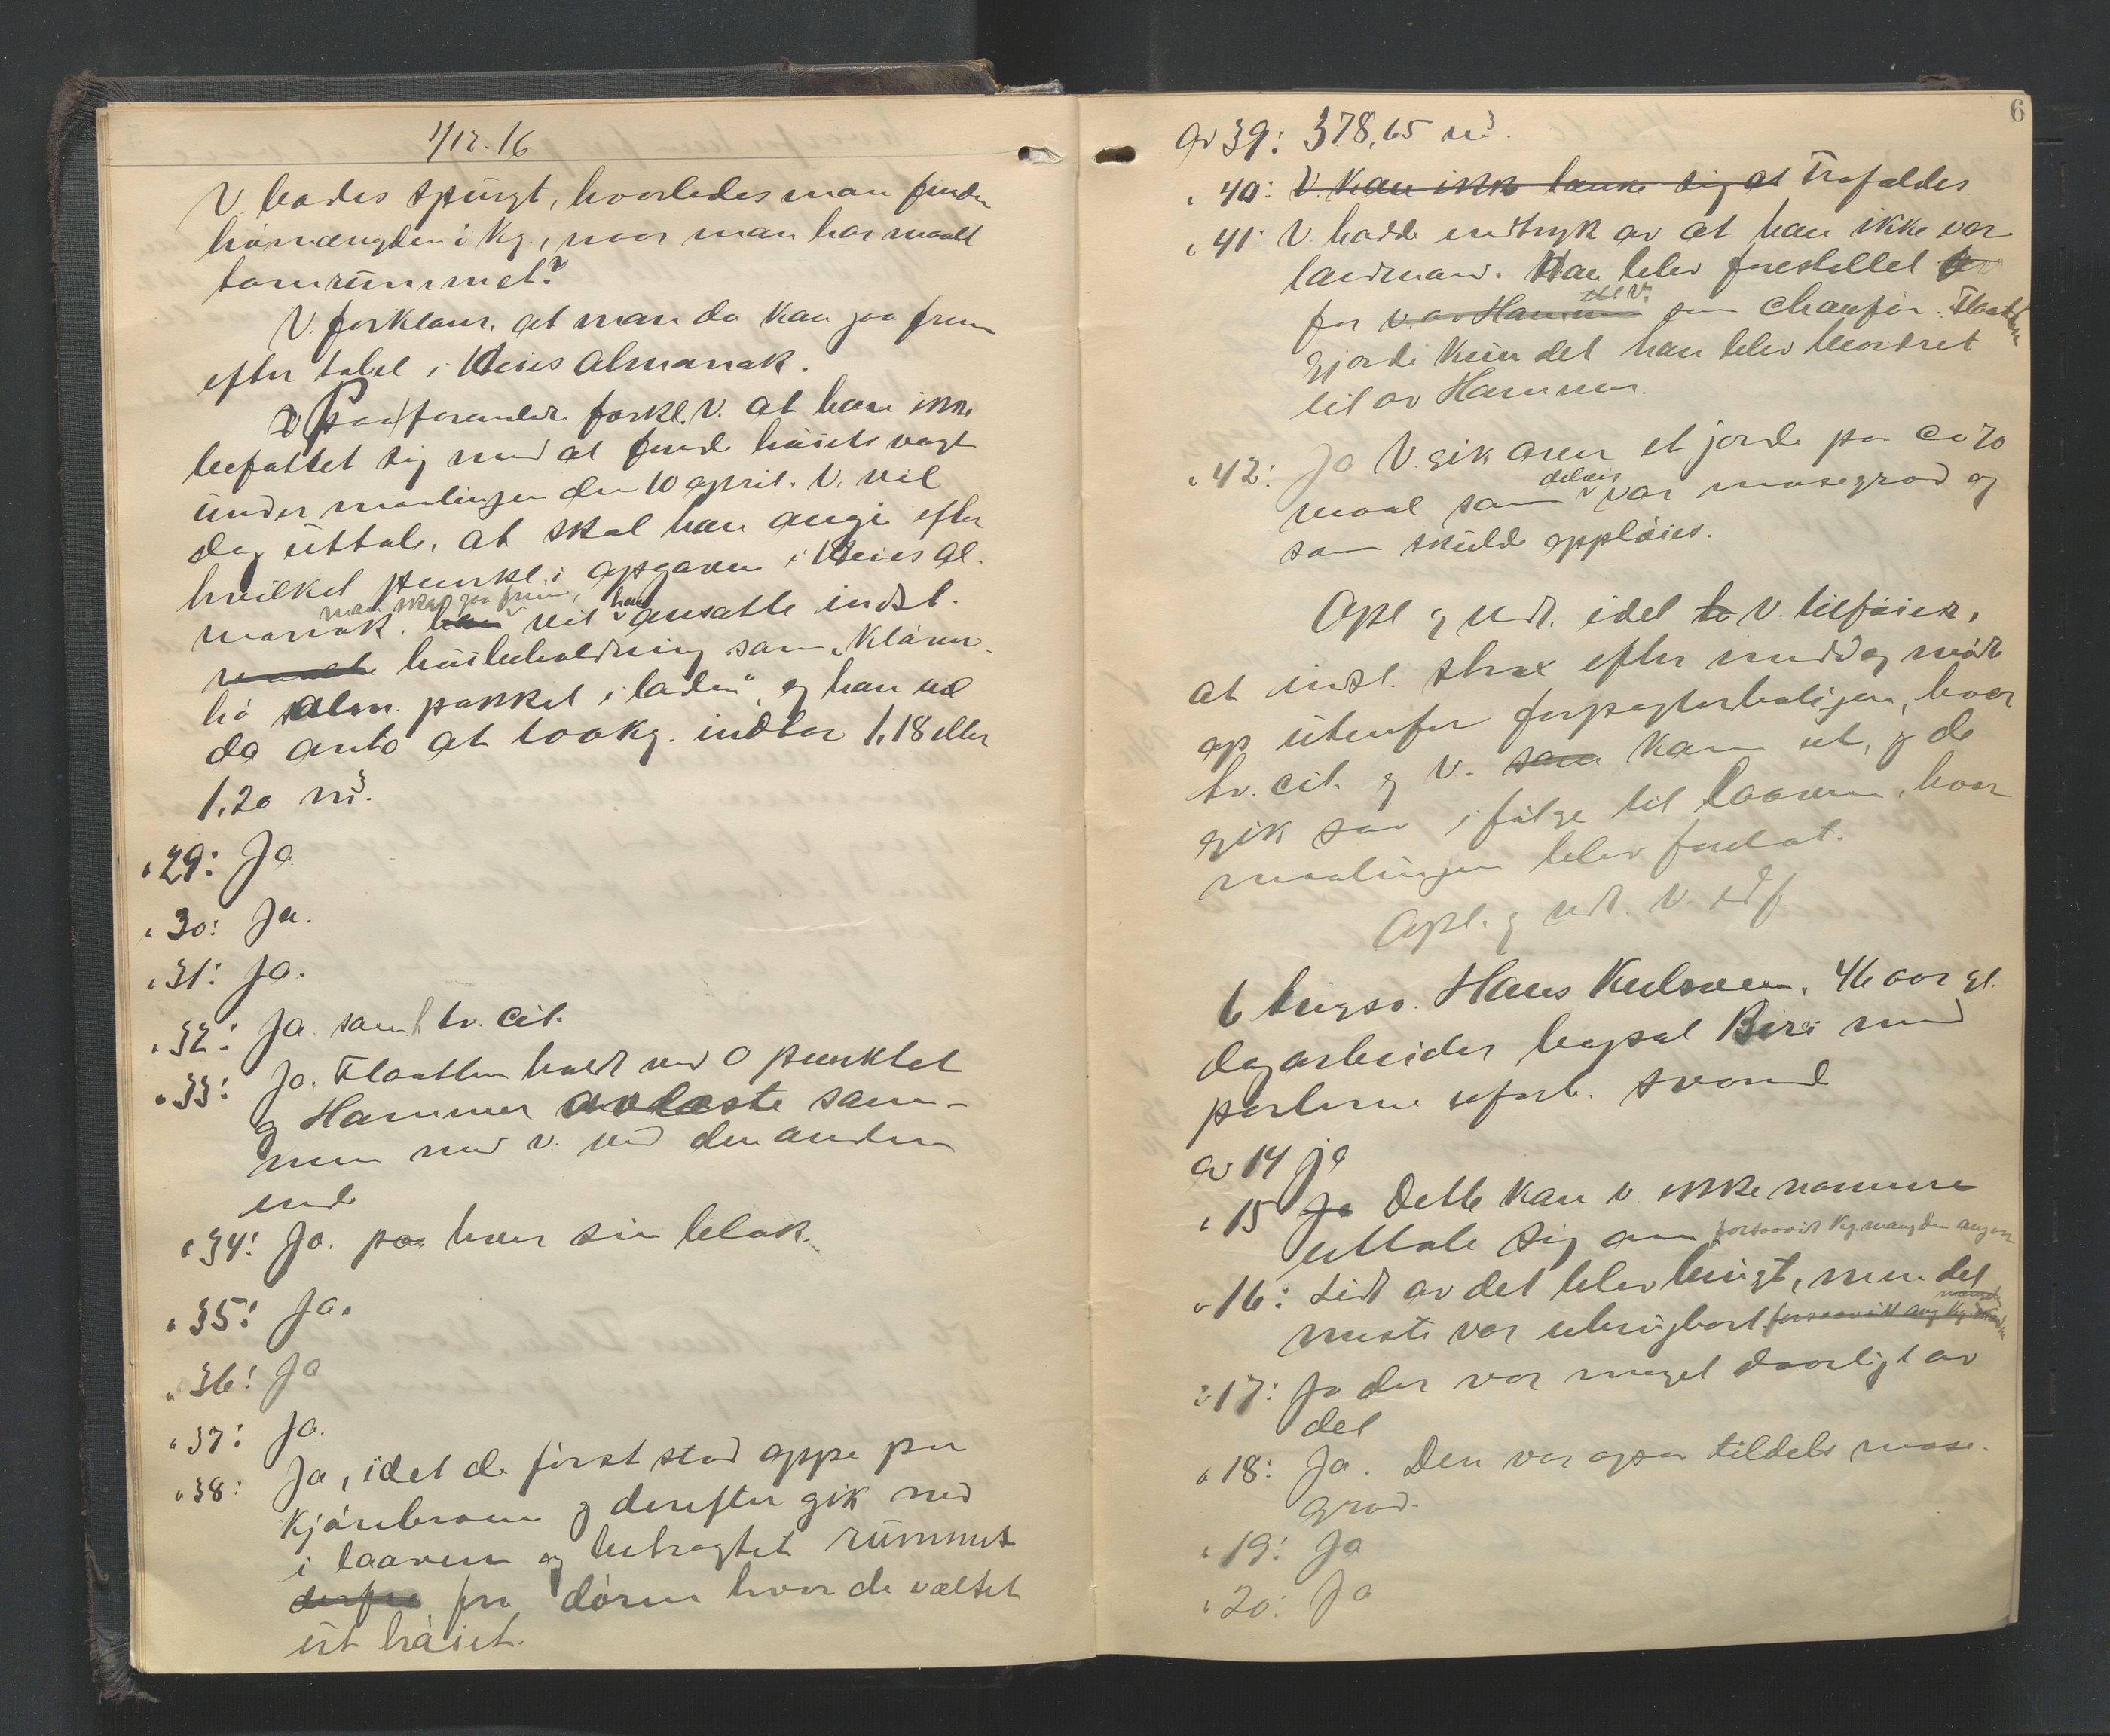 1/12.16
V. bades spurgt, hvorledes man finder
hømængden i Kg., naar man har maalt
tomrummet?
V. forklarer, at man da kan gaa frem
efter tabel i Heies Almanak.
Paa foranled. forkl. V. at han ikke
befattet sig med at finde høiets vegt
under maalingen den 10 april. V. vil
dog uttale, at skal han angi efter
hvilket punkt i opgaven i Heies Al-
man skal gaa frem, han
manak. han vil ansatte indst.
høibeholdning som "Kløver-
hø alm. pakket i laden" og han vil
da anta at 100 kg. indtar 1,18 eller
1,20 m³.
" 29: Ja
" 30: Ja.
" 31: Ja.
" 32: Ja. samt tv. cit.
" 33: Ja. Flaatten holdt ved 0 punktet
og Hammer avlæste sam-
men med v. ved den anden
ende
" 34: Ja. paa hver sin blok.
" 35: Ja.
" 36: Ja
" 37: Ja.
" 38: Ja, idet de først stod oppe paa
kjørebroen og derefter gik ned
i laaven og betragtet rummet
derfra fra døren hvor de væltet
ut høiet.
6
av 39: 378,65 m³.
" 40: V. kan ikke tænke sig at Frafaldes.
" 41: V. hadde indtryk av at han ikke var
landmand. Han blev forestillet
til V.
for v. av Hammer som chaufør. Flaatten
gjorde kun det han blev beordret
til av Hammer.
" 42: Ja V. gik over et jorde paa ca 70
delvis
maal som var mosegrod og
som skulde oppløies.
Opl. og vedt. idet V. tilføier,
at indst. strax efter middag møtte
op utenfor forpagterboligen, hvor
tv. cit. og V. som kom ut, og de
gik saa i følge til laaven, hvor
maalingen blev foretat.
Opl. og vedt. V.
6 bevisv. Hans Kulsveen, 46 aar gl.
dagarbeider bopæl Biri med
parterne ubesl. svared
av 14 ja
" 15 Ja Dette kan v. ikke nærmere
uttale sig om forsaavidt kg.mængden angaar
" 16: Lidt av det blev brugt, men det
mængden
meste var ubrugbart forsaavidt ang kg.
" 17: Ja der var meget daarligt av
det
" 18: Ja. Den var ogsaa tildels mose-
grod.
" 19: Ja
" 20: Ja